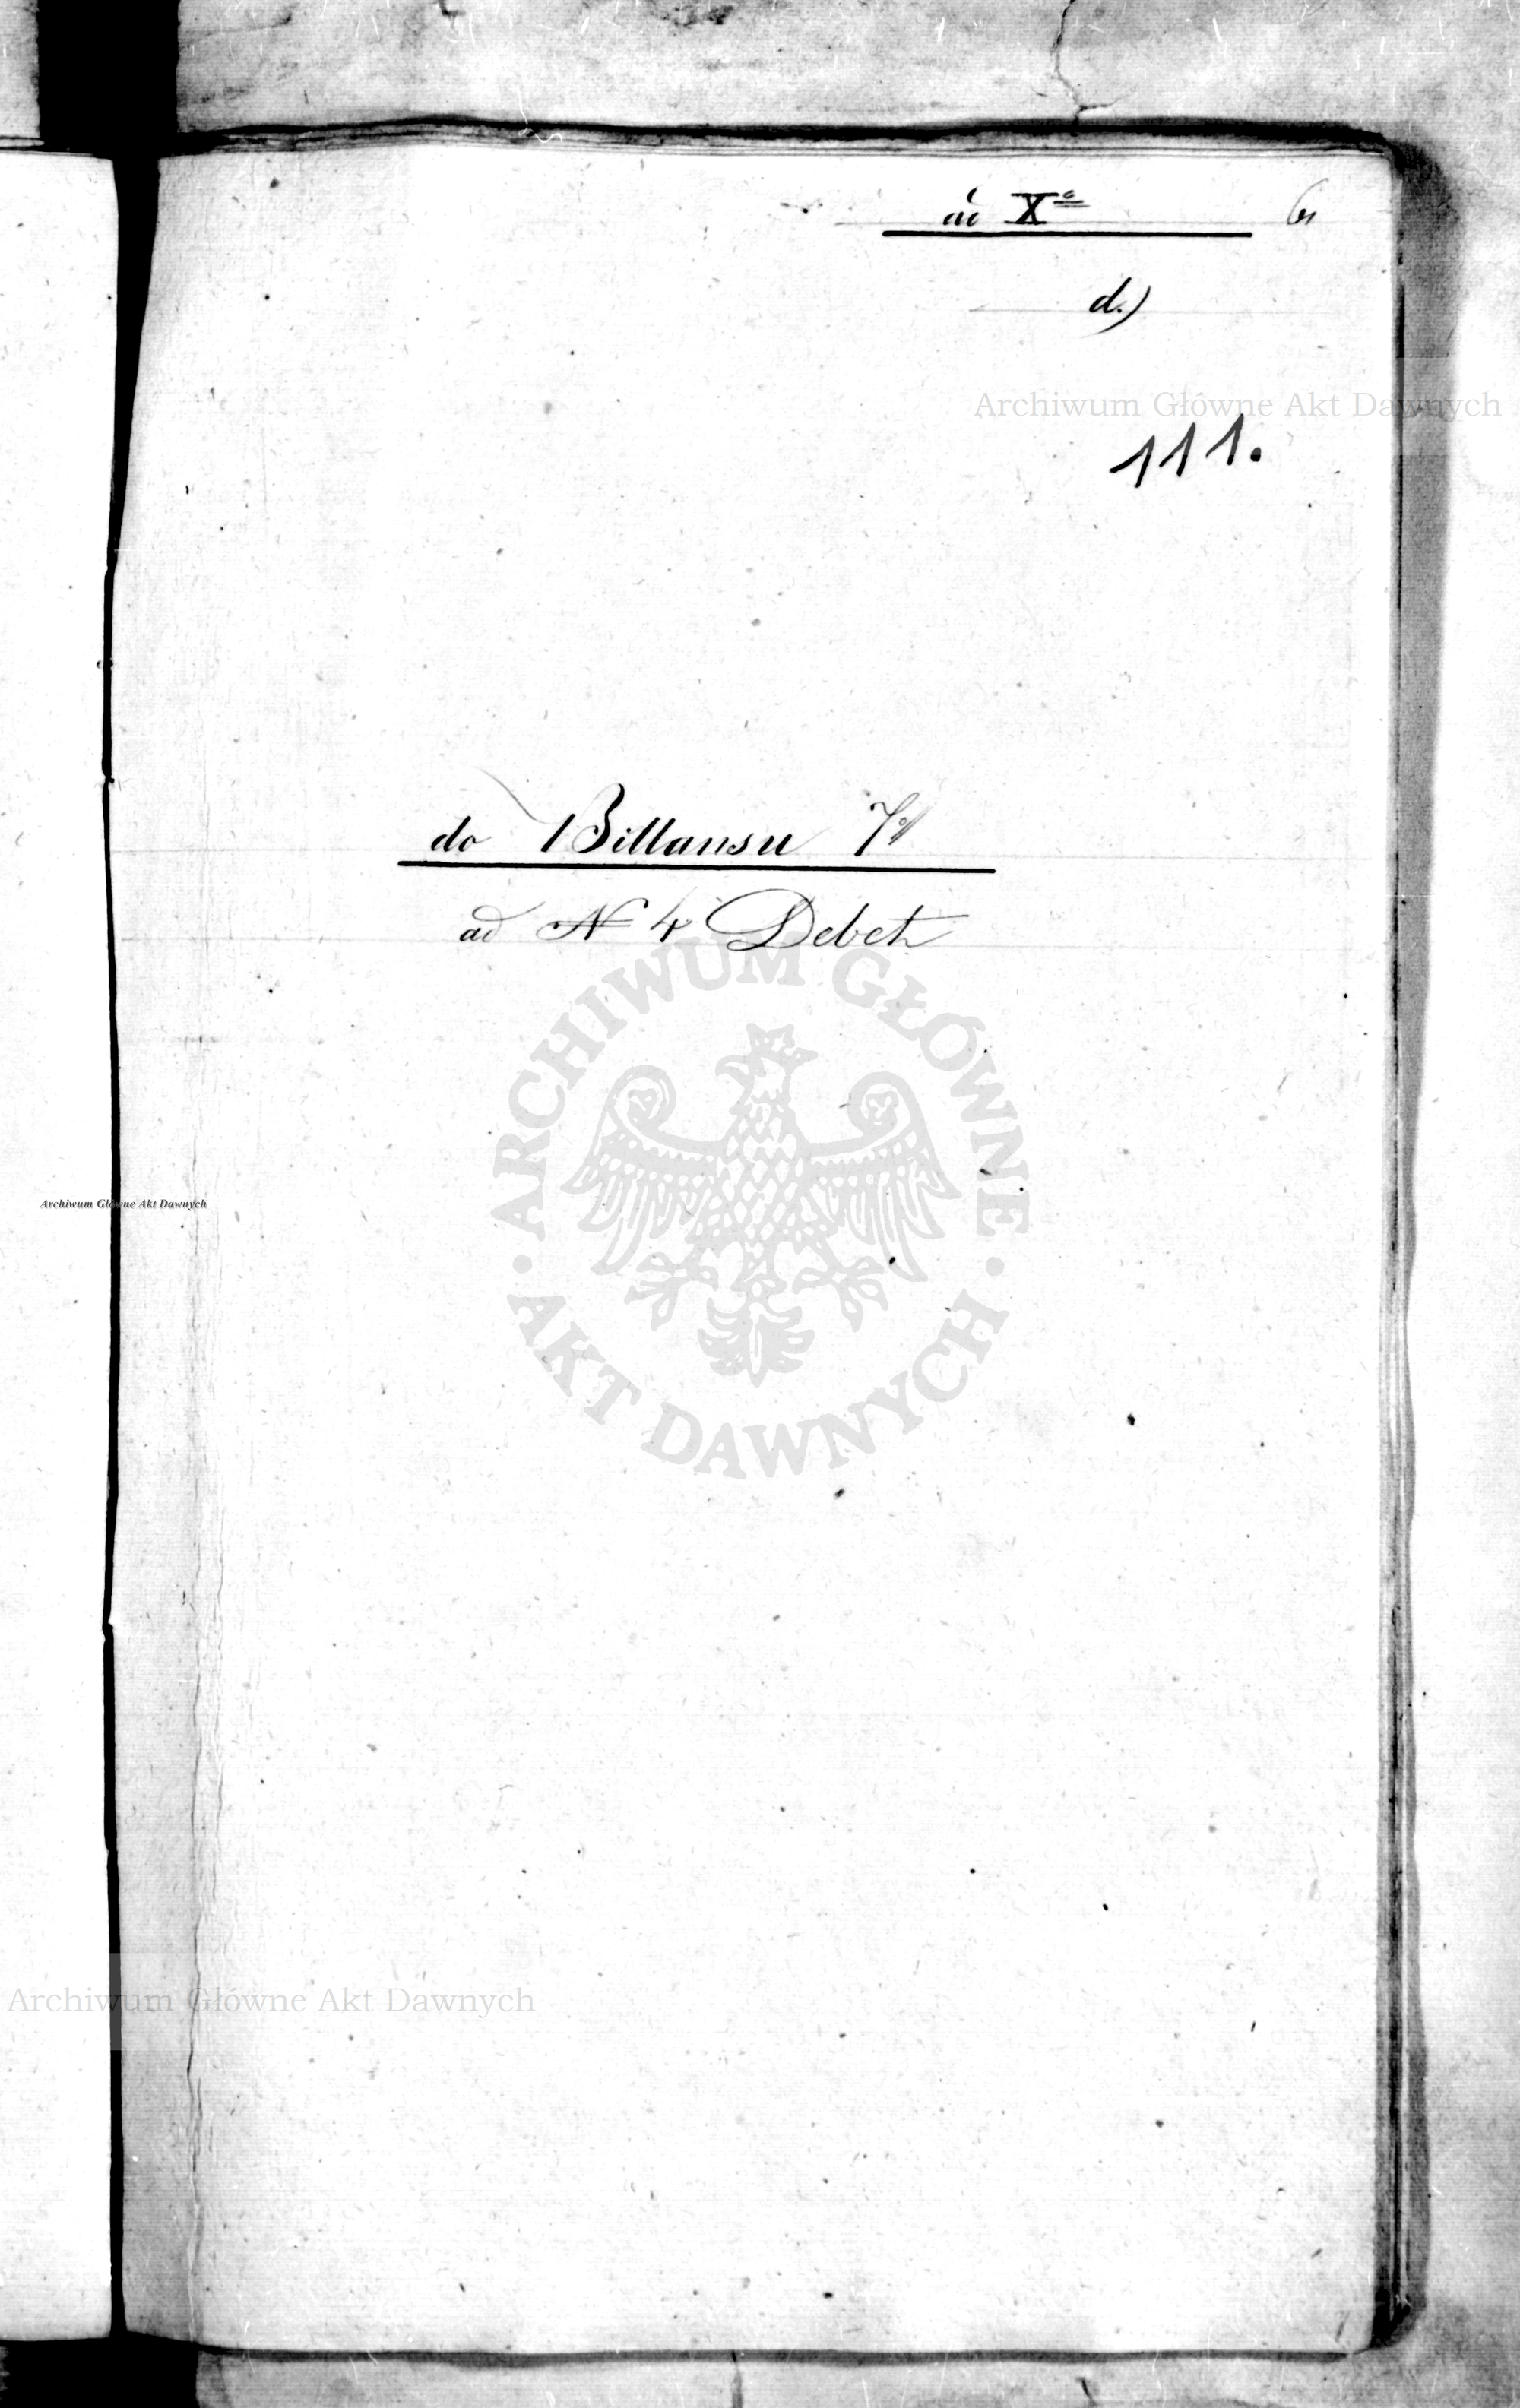 ad X<sup>o</sup> 6
d.)
Archiwum Główne Akt Dawnych
111.
do Billansu 7<sup>o</sup>
ad N 4 Debet
ARCHIWUM GŁÓWNE · AKT DAWNYCH ·
Archiwum Główne Akt Dawnych
Archiwum Główne Akt Dawnych